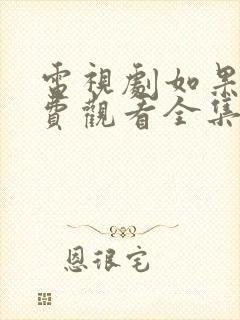 電視劇如果
費觀看全集
恩很宅